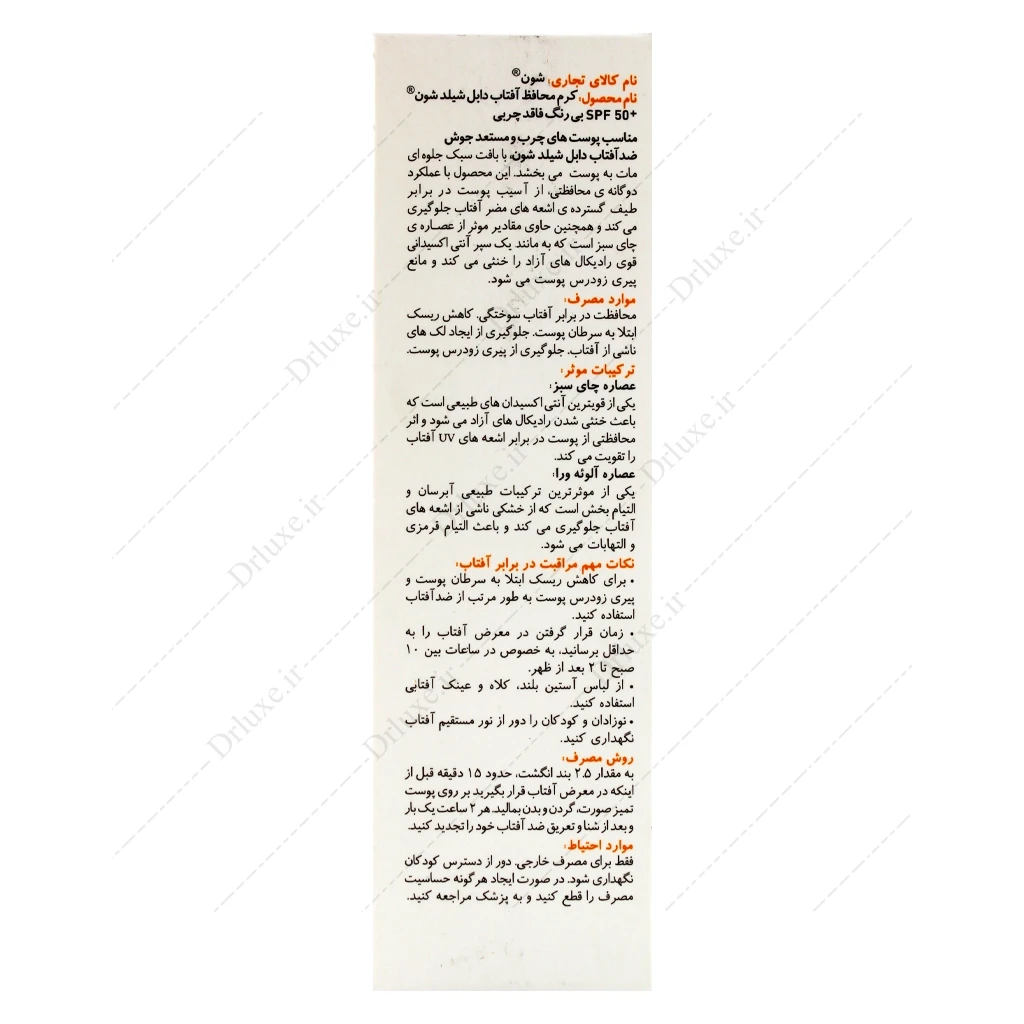 نام کالای تجاری: شون®
نام محصول: کرم محافظ آفتاب دابل شیلد شون®
SPF 50+ بی رنگ فاقد چربی
مناسب پوست های چرب و مستعد جوش
ضدآفتاب دابل شیلد شون، با بافت سبک جلوه ای
مات به پوست می بخشد. این محصول با عملکرد
دوگانه ی محافظتی، از آسیب پوست در برابر
طیف گسترده ی اشعه های مضر آفتاب جلوگیری
می کند و همچنین حاوی مقادیر موثر از عصاره ی
چای سبز است که به مانند یک سپر آنتی اکسیدانی
قوی رادیکال های آزاد را خنثی می کند و مانع
پیری زودرس پوست می شود.
موارد مصرف:
محافظت در برابر آفتاب سوختگی. کاهش ریسک
ابتلا به سرطان پوست. جلوگیری از ایجاد لک های
ناشی از آفتاب. جلوگیری از پیری زودرس پوست.
ترکیبات موثر:
عصاره چای سبز:
یکی از قویترین آنتی اکسیدان های طبیعی است که
باعث خنثی شدن رادیکال های آزاد می شود و اثر
محافظتی از پوست در برابر اشعه های UV آفتاب
را تقویت می کند.
عصاره آلوئه ورا:
یکی از موثرترین ترکیبات طبیعی آبرسان و
التیام بخش است که از خشکی ناشی از اشعه های
آفتاب جلوگیری می کند و باعث التیام قرمزی
و التهابات می شود.
نکات مهم مراقبت در برابر آفتاب:
• برای کاهش ریسک ابتلا به سرطان پوست و
پیری زودرس پوست به طور مرتب از ضدآفتاب
استفاده کنید.
• زمان قرار گرفتن در معرض آفتاب را به
حداقل برسانید، به خصوص در ساعات بین ۱۰
صبح تا ۲ بعد از ظهر.
• از لباس آستین بلند، کلاه و عینک آفتابی
استفاده کنید.
• نوزادان و کودکان را دور از نور مستقیم آفتاب
نگهداری کنید.
روش مصرف:
به مقدار ۲.۵ بند انگشت، حدود ۱۵ دقیقه قبل از
اینکه در معرض آفتاب قرار بگیرید بر روی پوست
تمیز صورت، گردن و بدن بمالید. هر ۲ ساعت یک بار
و بعد از شنا و تعریق ضد آفتاب خود را تجدید کنید.
موارد احتیاط:
فقط برای مصرف خارجی. دور از دسترس کودکان
نگهداری شود. در صورت ایجاد هرگونه حساسیت
مصرف را قطع کنید و به پزشک مراجعه کنید.
Drluxe.ir
Drluxe.ir
Drluxe.ir
Drluxe.ir
Drluxe.ir
Drluxe.ir
Drluxe.ir
Drluxe.ir
Drluxe.ir